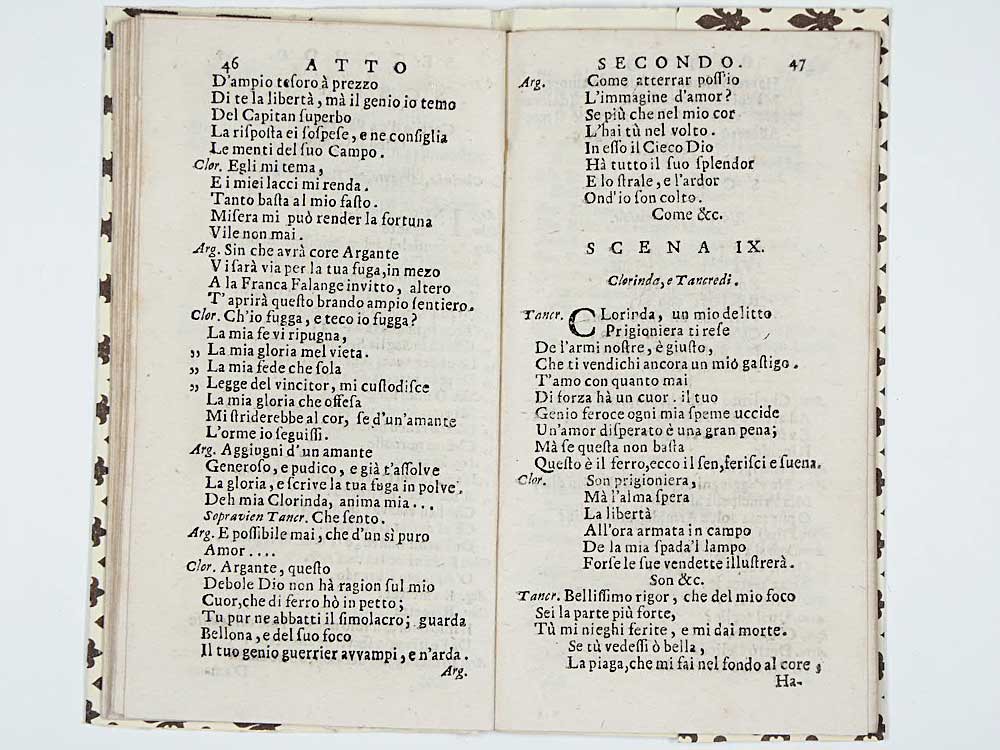 46 ATTO
D'ampio tesoro à prezzo
Di te la libertà, mà il genio io temo
Del Capitan superbo
La risposta ei sospese, e ne consiglia
Le menti del suo Campo.
Clor. Egli mi tema,
E i miei lacci mi renda.
Tanto basta al mio fasto.
Misera mi può render la fortuna
Vile non mai.
Arg. Sin che avrà core Argante
Vi sarà via per la tua fuga, in mezo
A la Franca Falange invitto, altero
T'aprirà questo brando ampio sentiero.
Clor. Ch'io fugga, e teco io fugga?
La mia fe vi ripugna,
„ La mia gloria mel vieta.
„ La mia fede che sola
„ Legge del vincitor, mi custodisce
La mia gloria che offesa
Mi striderebbe al cor, se d'un'amante
L'orme io seguissi.
Arg. Aggiugni d'un amante
Generoso, e pudico, e già t'assolve
La gloria, e scrive la tua fuga in polve.
Deh mia Clorinda, anima mia...
Sopravien Tancr. Che sento.
Arg. E possibile mai, che d'un sì puro
Amor....
Clor. Argante, questo
Debole Dio non hà ragion sul mio
Cuor, che di ferro hò in petto;
Tu pur ne abbatti il simolacro; guarda
Bellona, e del suo foco
Il tuo genio guerrier avvampi, e n'arda.
Arg.
SECONDO. 47
Arg. Come atterrar poss'io
L'immagine d'amor?
Se più che nel mio cor
L'hai tù nel volto.
In esso il Cieco Dio
Hà tutto il suo splendor
E lo strale, e l'ardor
Ond'io son colto.
Come &c.
SCENA IX.
Clorinda, e Tancredi.
Tancr. CLorinda, un mio delitto
Prigioniera ti rese
De l'armi nostre, è giusto,
Che ti vendichi ancora un mio gastigo.
T'amo con quanto mai
Di forza hà un cuor. il tuo
Genio feroce ogni mia speme uccide
Un'amor disperato è una gran pena;
Mà se questa non basta
Questo è il ferro, ecco il sen, ferisci e suena.
Clor. Son prigioniera,
Mà l'alma spera
La libertà
All'ora armata in campo
De la mia spada'l lampo
Forse le sue vendette illustrerà.
Son &c.
Tancr. Bellissimo rigor, che del mio foco
Sei la parte più forte,
Tù mi nieghi ferite, e mi dai morte.
Se tù vedessi ò bella,
La piaga, che mi fai nel fondo al core,
Ha-